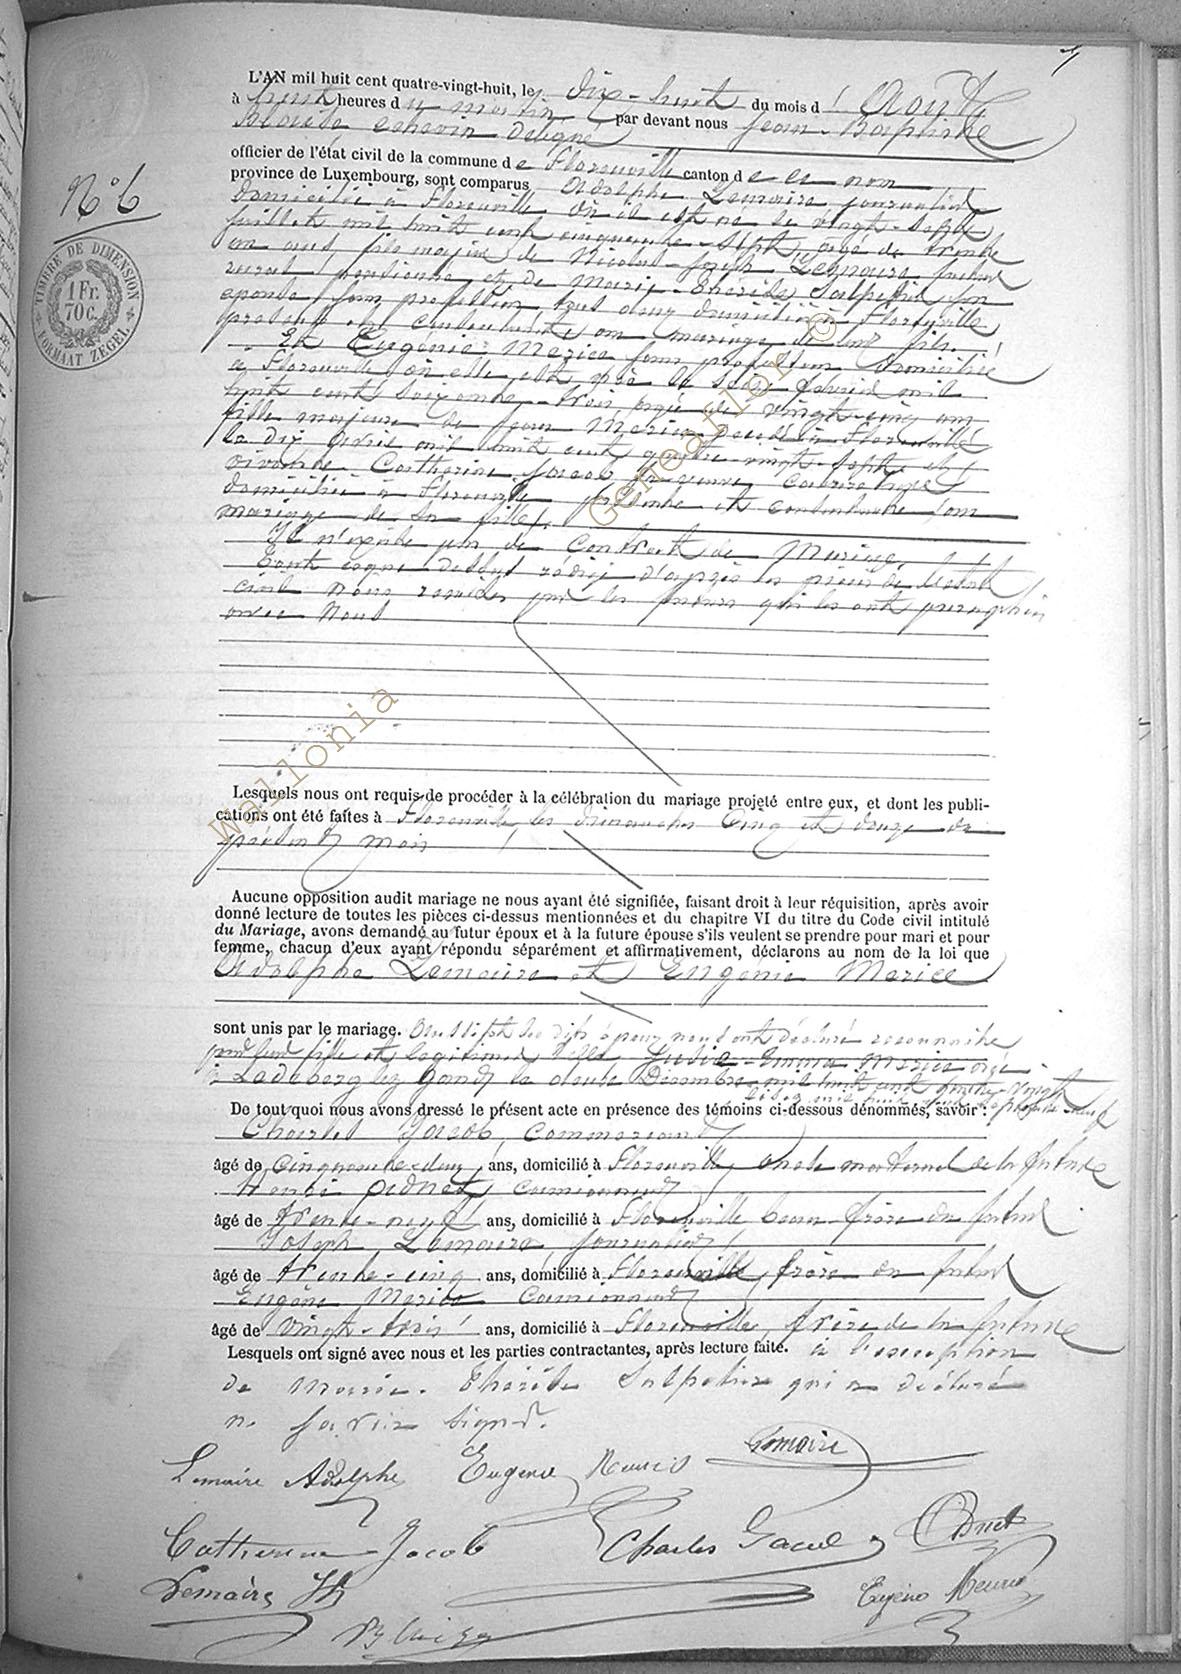 L'AN mil huit cent quatre-vingt-huit, le dix-huit du mois d'Août
à huit heures du matin par devant nous Jean-Baptiste
échevin délégué
officier de l'état civil de la commune de Florenville canton de ce nom
province de Luxembourg, sont comparus Adolphe Lemaire journalier
domicilié à Florenville où il est né le vingt-sept
N° 6
juillet mil huit cent cinquante-sept, âgé de trente
TIMBRE DE DIMENSION
1 Fr.
70 c.
FORMAAT ZEGEL
un ans, fils majeur de Nicolas-Joseph Lemaire
et de Marie-Thérèse Salpetier son
épouse sans profession tous deux domiciliés à Florenville
présents et consentants au mariage de leur fils.
Et Eugénie Merice sans profession domiciliée
à Florenville où elle est née le février mil
huit cent soixante-trois, âgée de vingt-cinq ans
fille majeure de feu Merice décédé à Florenville
le dix avril mil huit cent quatre-vingt-sept et
vivante Catherine Jacob sa veuve
domiciliée à Florenville présente et consentante au
mariage de sa fille.
Il n'existe pas de Contrat de Mariage.
dessus rédigé d'après les pièces de l'état
civil nous remises par les futurs qui les ont
avec nous
Lesquels nous ont requis de procéder à la célébration du mariage projeté entre eux, et dont les publi-
cations ont été faites à Florenville les dimanches cinq et douze du
présent mois
Aucune opposition audit mariage ne nous ayant été signifiée, faisant droit à leur réquisition, après avoir
donné lecture de toutes les pièces ci-dessus mentionnées et du chapitre VI du titre du Code civil intitulé
du Mariage, avons demandé au futur époux et à la future épouse s'ils veulent se prendre pour mari et pour
femme, chacun d'eux ayant répondu séparément et affirmativement, déclarons au nom de la loi que
Adolphe Lemaire et Eugénie Merice
sont unis par le mariage. Aussitôt les dits époux nous ont déclaré reconnaître
pour leur fille et légitimer Emma Merice
à Ledeberg lez Gand le douze Décembre mil huit cent quatre-vingt
De tout quoi nous avons dressé le présent acte en présence des témoins ci-dessous dénommés, savoir :
Charles Jacob, commerçant
âgé de cinquante-deux ans, domicilié à Florenville, oncle maternel de la future
Henri camionneur
âgé de trente-neuf ans, domicilié à Florenville beau-frère du futur
Joseph Lemaire, journalier
âgé de trente-cinq ans, domicilié à Florenville, frère du futur
Eugène Merice Camionneur
âgé de vingt-trois ans, domicilié à Florenville, frère de la future
Lesquels ont signé avec nous et les parties contractantes, après lecture faite. à l'exception
de Marie-Thérèse Salpetier qui a déclaré
ne savoir signer.
Lemaire Adolphe Eugenie Lemaire
Catherine Jacob Charles Jacob
Lemaire Jh Eugène
Wallonia
Geneaflor ©